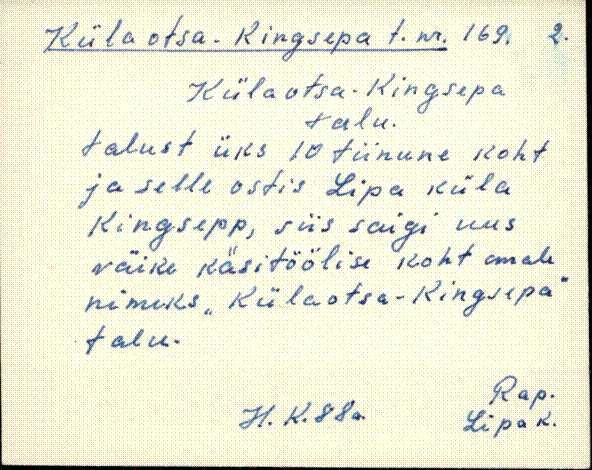 Küla otsa - Kingsepa t. nr. 169. 2.
Külaotsa - Kingsepa
talu.
talust üks 10 tiinune koht
ja selle ostis Lipa küla
Kingsepp, siis saigi uus
väike käsitöölise koht omale
nimeks „Külaotsa - Kingsepa"
talu.
H. K. 88a.
Rap.
Lipa k.